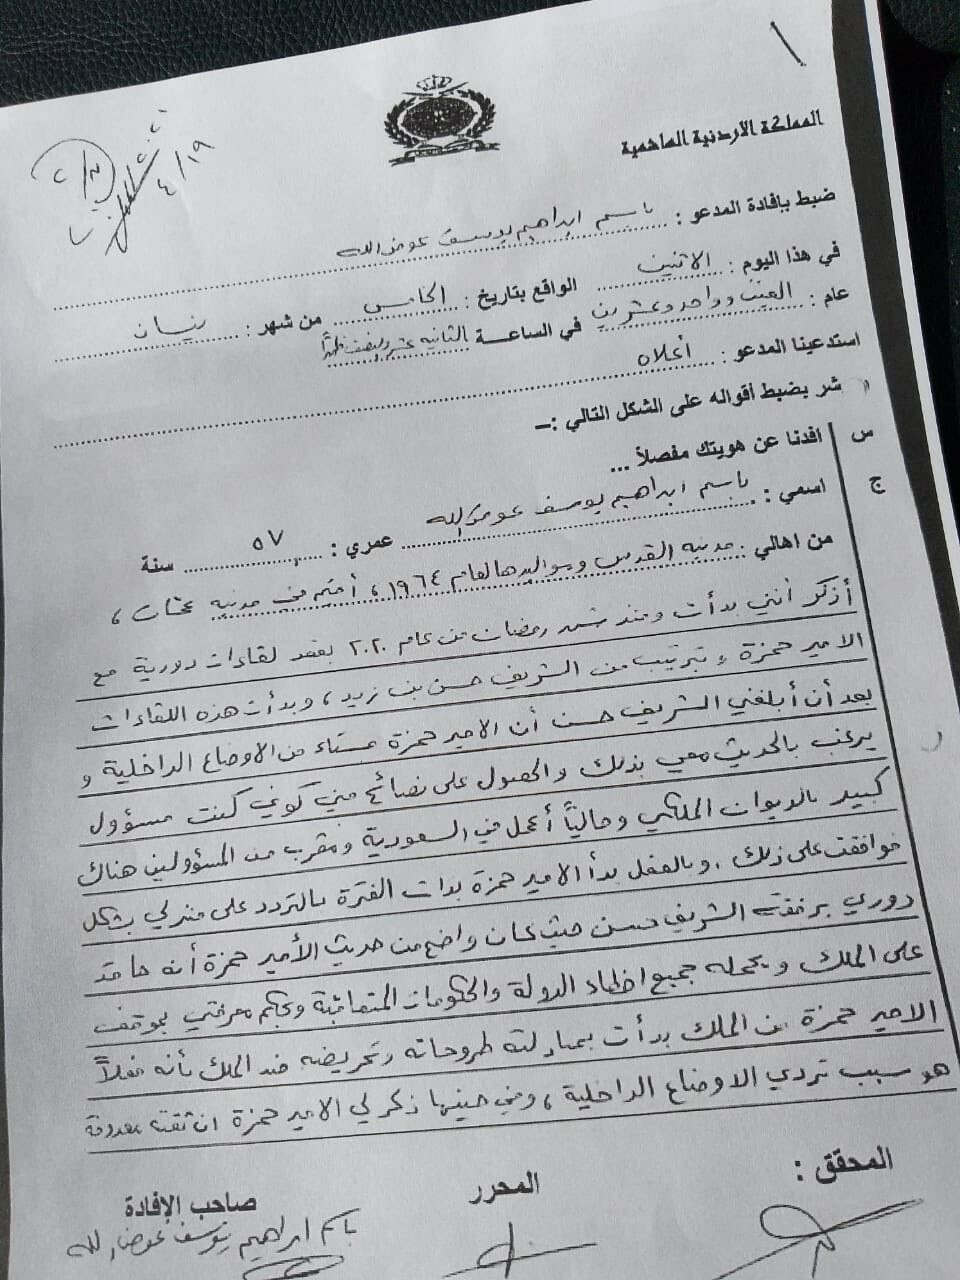 ١
المملكة الاردنية الهاشمية
٤/١٩
ضبط بإفادة المدعو : باسم ابراهيم يوسف عوض الله
في هذا اليوم : الاثنين الواقع بتاريخ : الخامس من شهر : نيسان
عام : الفين وواحد وعشرين في الساعة الثانيه عشر ونصف ظهراً
استدعينا المدعو : أعلاه
شر بضبط أقواله على الشكل التالي :-
س افدنا عن هويتك مفصلاً ...
ج اسمي : باسم ابراهيم يوسف عوض الله عمري : ٥٧ سنة
من اهالي : مدينه القدس ومواليدها لعام ١٩٦٤ ، أقيم في مدينه عمان ،
أذكر أنني بدأت ومنذ شهر رمضان من عام ٢٠٢٠ بعقد لقاءات دورية مع
الامير حمزة وبترتيب من الشريف حسن بن زيد ، وبدأت هذه اللقاءات
بعد أن أبلغني الشريف حسن أن الامير حمزة مستاء من الاوضاع الداخلية و
يرغب بالحديث معي بذلك والحصول على نصائح مني كوني كنت مسؤول
كبير بالديوان الملكي وحالياً أعمل في السعودية ومقرب من المسؤولين هناك
فوافقت على ذلك . وبالفعل بدأ الامير حمزة بذات الفترة بالتردد على منزلي بشكل
دوري برفقة الشريف حسن حيث كان واضح من حديث الأمير حمزة أنه حاقد
على الملك و يحمله جميع اخطاء الدولة والحكومات المتعاقبة وبحكم معرفتي بموقف
الامير حمزة من الملك بدأت بمبادلته طروحاته وتحريضه ضد الملك بأنه فعلاً
هو سبب تردي الاوضاع الداخلية ، وفي حينها ذكر لي الامير حمزة ان ثقته معدومة
المحقق : المحرر صاحب الإفادة
باسم ابراهيم يوسف عوض الله